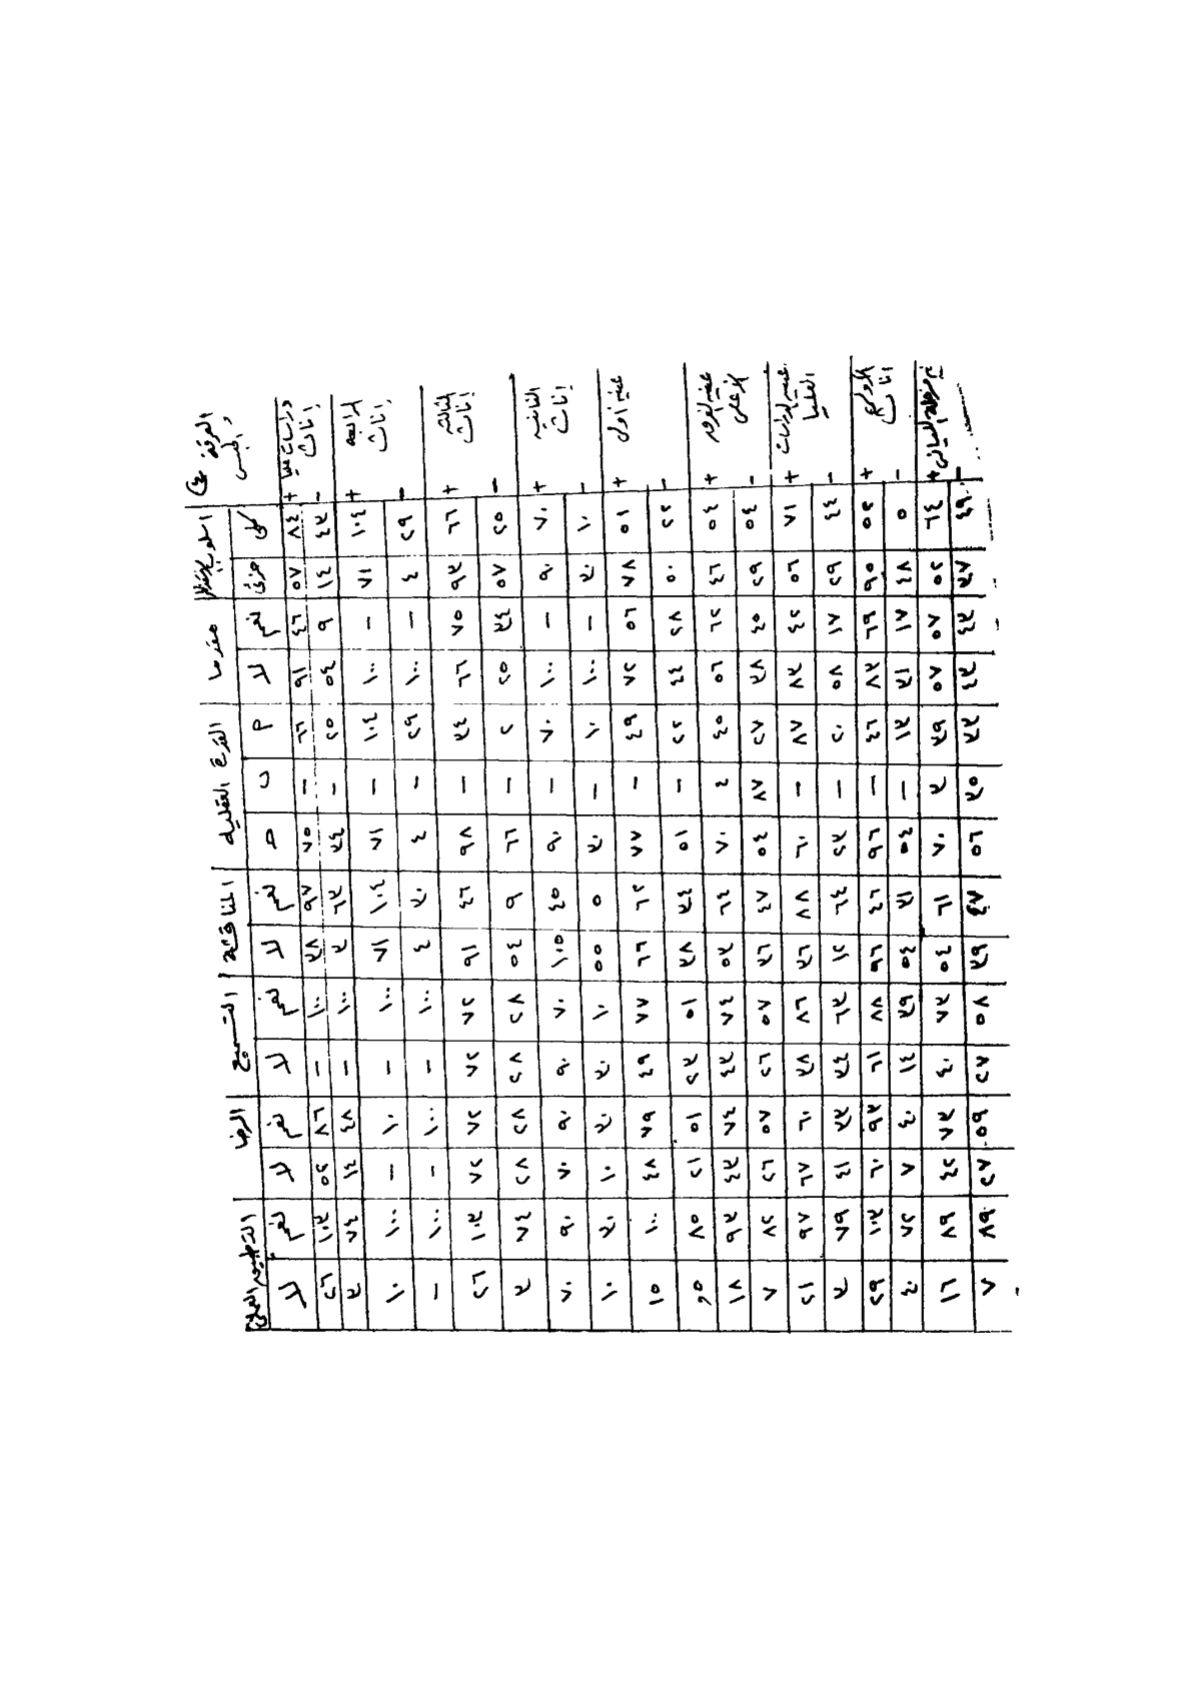 الفرقة والجنس أسلوب الحفظ القدرة العقلية المناقشة التسميع الرضا
كلى جزئى نعم لا م ب ص نعم لا نعم لا نعم لا نعم لا
دراسات عليا إناث + ٨٤ ٥٧ ٤٦ ٩١ ٦٦ – ٧٥ ٩٧ ٣٨ ١٠٠ – ٨٦ ٥٢ ١٠٣ ٢٦
– ٤٣ ١٤ ٩ ٥٤ ٢٥ – ٣٤ ٦٣ ٣ ١٠٠ – ٤٨ ١٤ ٧٤ ٣
الرابعة إناث + ١٠٤ ٧١ – ١٠٠ ١٠٤ – ٧١ ١٠٤ ٧١ ١٠٠ – ١٠ – ١٠٠ ١٠
– ٢٩ ٤ – ١٠٠ ٢٩ – ٤ ٣٠ ٤ ١٠٠ – ١٠٠ – ١٠٠ –
الثالثة إناث + ٦٦ ٩٣ ٧٥ ٦٦ ٣٤ – ٩٨ ٤٦ ٩١ ٧٢ ٧٢ ٧٢ ٧٢ ١٠٣ ٢٦
– ٢٥ ٥٧ ٣٤ ٢٥ ٢ – ٦٦ ٩ ٥٤ ٢٨ ٢٨ ٢٨ ٢٨ ٧٤ ٣
الثانية إناث + ٧٠ ٩٠ – ١٠٠ ٧٠ – ٩٠ ٤٥ ١٠٥ ٧٠ ٩٠ ٩٠ ٧٠ ٩٠ ٧٠
– ١٠ ٣٠ – ١٠٠ ١٠ – ٣٠ ٥ ٥٥ ١٠ ٣٠ ٣٠ ١٠ ٣٠ ١٠
عينة أولى + ٥١ ٧٨ ٥٦ ٧٢ ٤٩ – ٧٧ ٦٢ ٦٦ ٧٧ ٤٩ ٧٩ ٤٨ ١٠٠ ١٥
– ٢٢ ٥٠ ٢٨ ٤٤ ٢٢ – ٥١ ٣٤ ٣٨ ٥١ ٢٣ ٥١ ٢١ ٨٥ ٠٫٥
عينة + ٥٤ ٤٦ ٦٢ ٥٦ ٤٥ ٤ ٧٠ ٦٤ ٥٣ ٧٤ ٤٣ ٧٤ ٤٣ ٩٣ ١٨
– ٥٤ ٢٩ ٤٥ ٣٨ ٢٧ ٨٧ ٥٤ ٤٧ ٣٦ ٥٧ ٢٦ ٥٧ ٢٦ ٨٢ ٧
عينة الدراسات العليا + ٧١ ٥٦ ٤٢ ٨٣ ٨٧ – ٦٠ ٨٨ ٣٦ ٨٦ ٣٨ ٦٠ ٦٧ ٩٧ ٢١
– ٤٤ ٢٩ ١٧ ٥٨ ٢٠ – ٣٢ ٦٤ ١٢ ٦٣ ٣٤ ٣٣ ٤١ ٧٩ ٣
إناث + ٥٢ ٩٥ ٦٩ ٨٣ ٤٦ – ٩٦ ٤٦ ٩٦ ٨٨ ٦١ ٩٣ ٦٠ ١٠٣ ٢٩
– ٥ ٤٨ ١٧ ٣١ ١٣ – ٥٤ ٣١ ٥٤ ٣٩ ١٤ ٤٠ ٨ ٧٢ ٤
+ ٦٤ ٥٢ ٥٧ ٥٧ ٣٩ ٣ ٧٠ ٦١ ٥٤ ٧٣ ٤٠ ٧٣ ٤٢ ٨٩ ١٦
– ٤٩ ٣٧ ٤٣ ٤٣ ٣٣ ٣٥ ٥٦ ٤٧ ٣٩ ٥٨ ٢٧ ٥٩ ٢٧ ٨٩ ٧